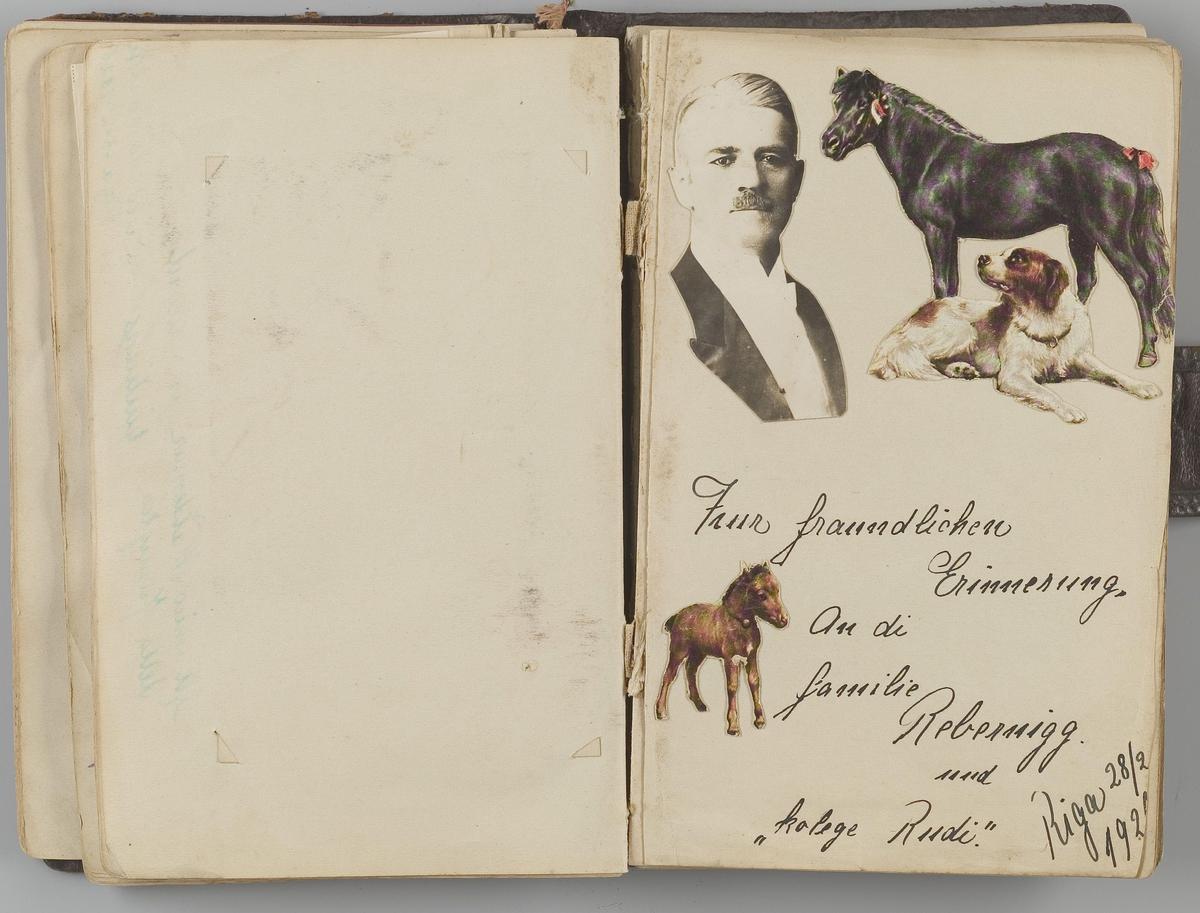 Zur fraundlichen
Erinnerung.
An di
familie
Rebernigg.
und
„kolege Rudi.“
Riga 28/2